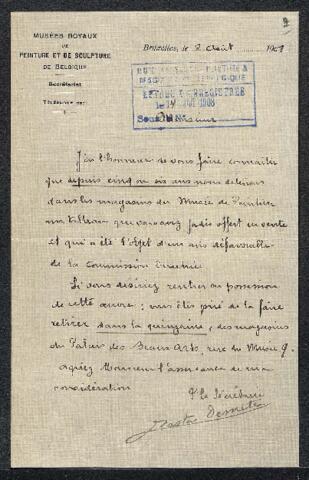 MUSÉES ROYAUX
DE
PEINTURE ET DE SCULPTURE
DE BELGIQUE
Secrétariat
Bruxelles, le 2 août 190
Monsieur
J'ai l'honneur de vous faire connaître
que depuis cinq ou six ans nous détenons
dans les magasins du Musée de Peinture
un tableau que vous avez jadis offert en vente
et qui a été l'objet d'un avis défavorable
de la Commission
Si vous désirez rentrer en possession
de cette œuvre, vous êtes prié de la faire
retirer dans la quinzaine, des magasins
du Palais des Beaux-Arts, rue du Musée 9.
Agréez Monsieur l'assurance de ma
considération
Le Secrétaire